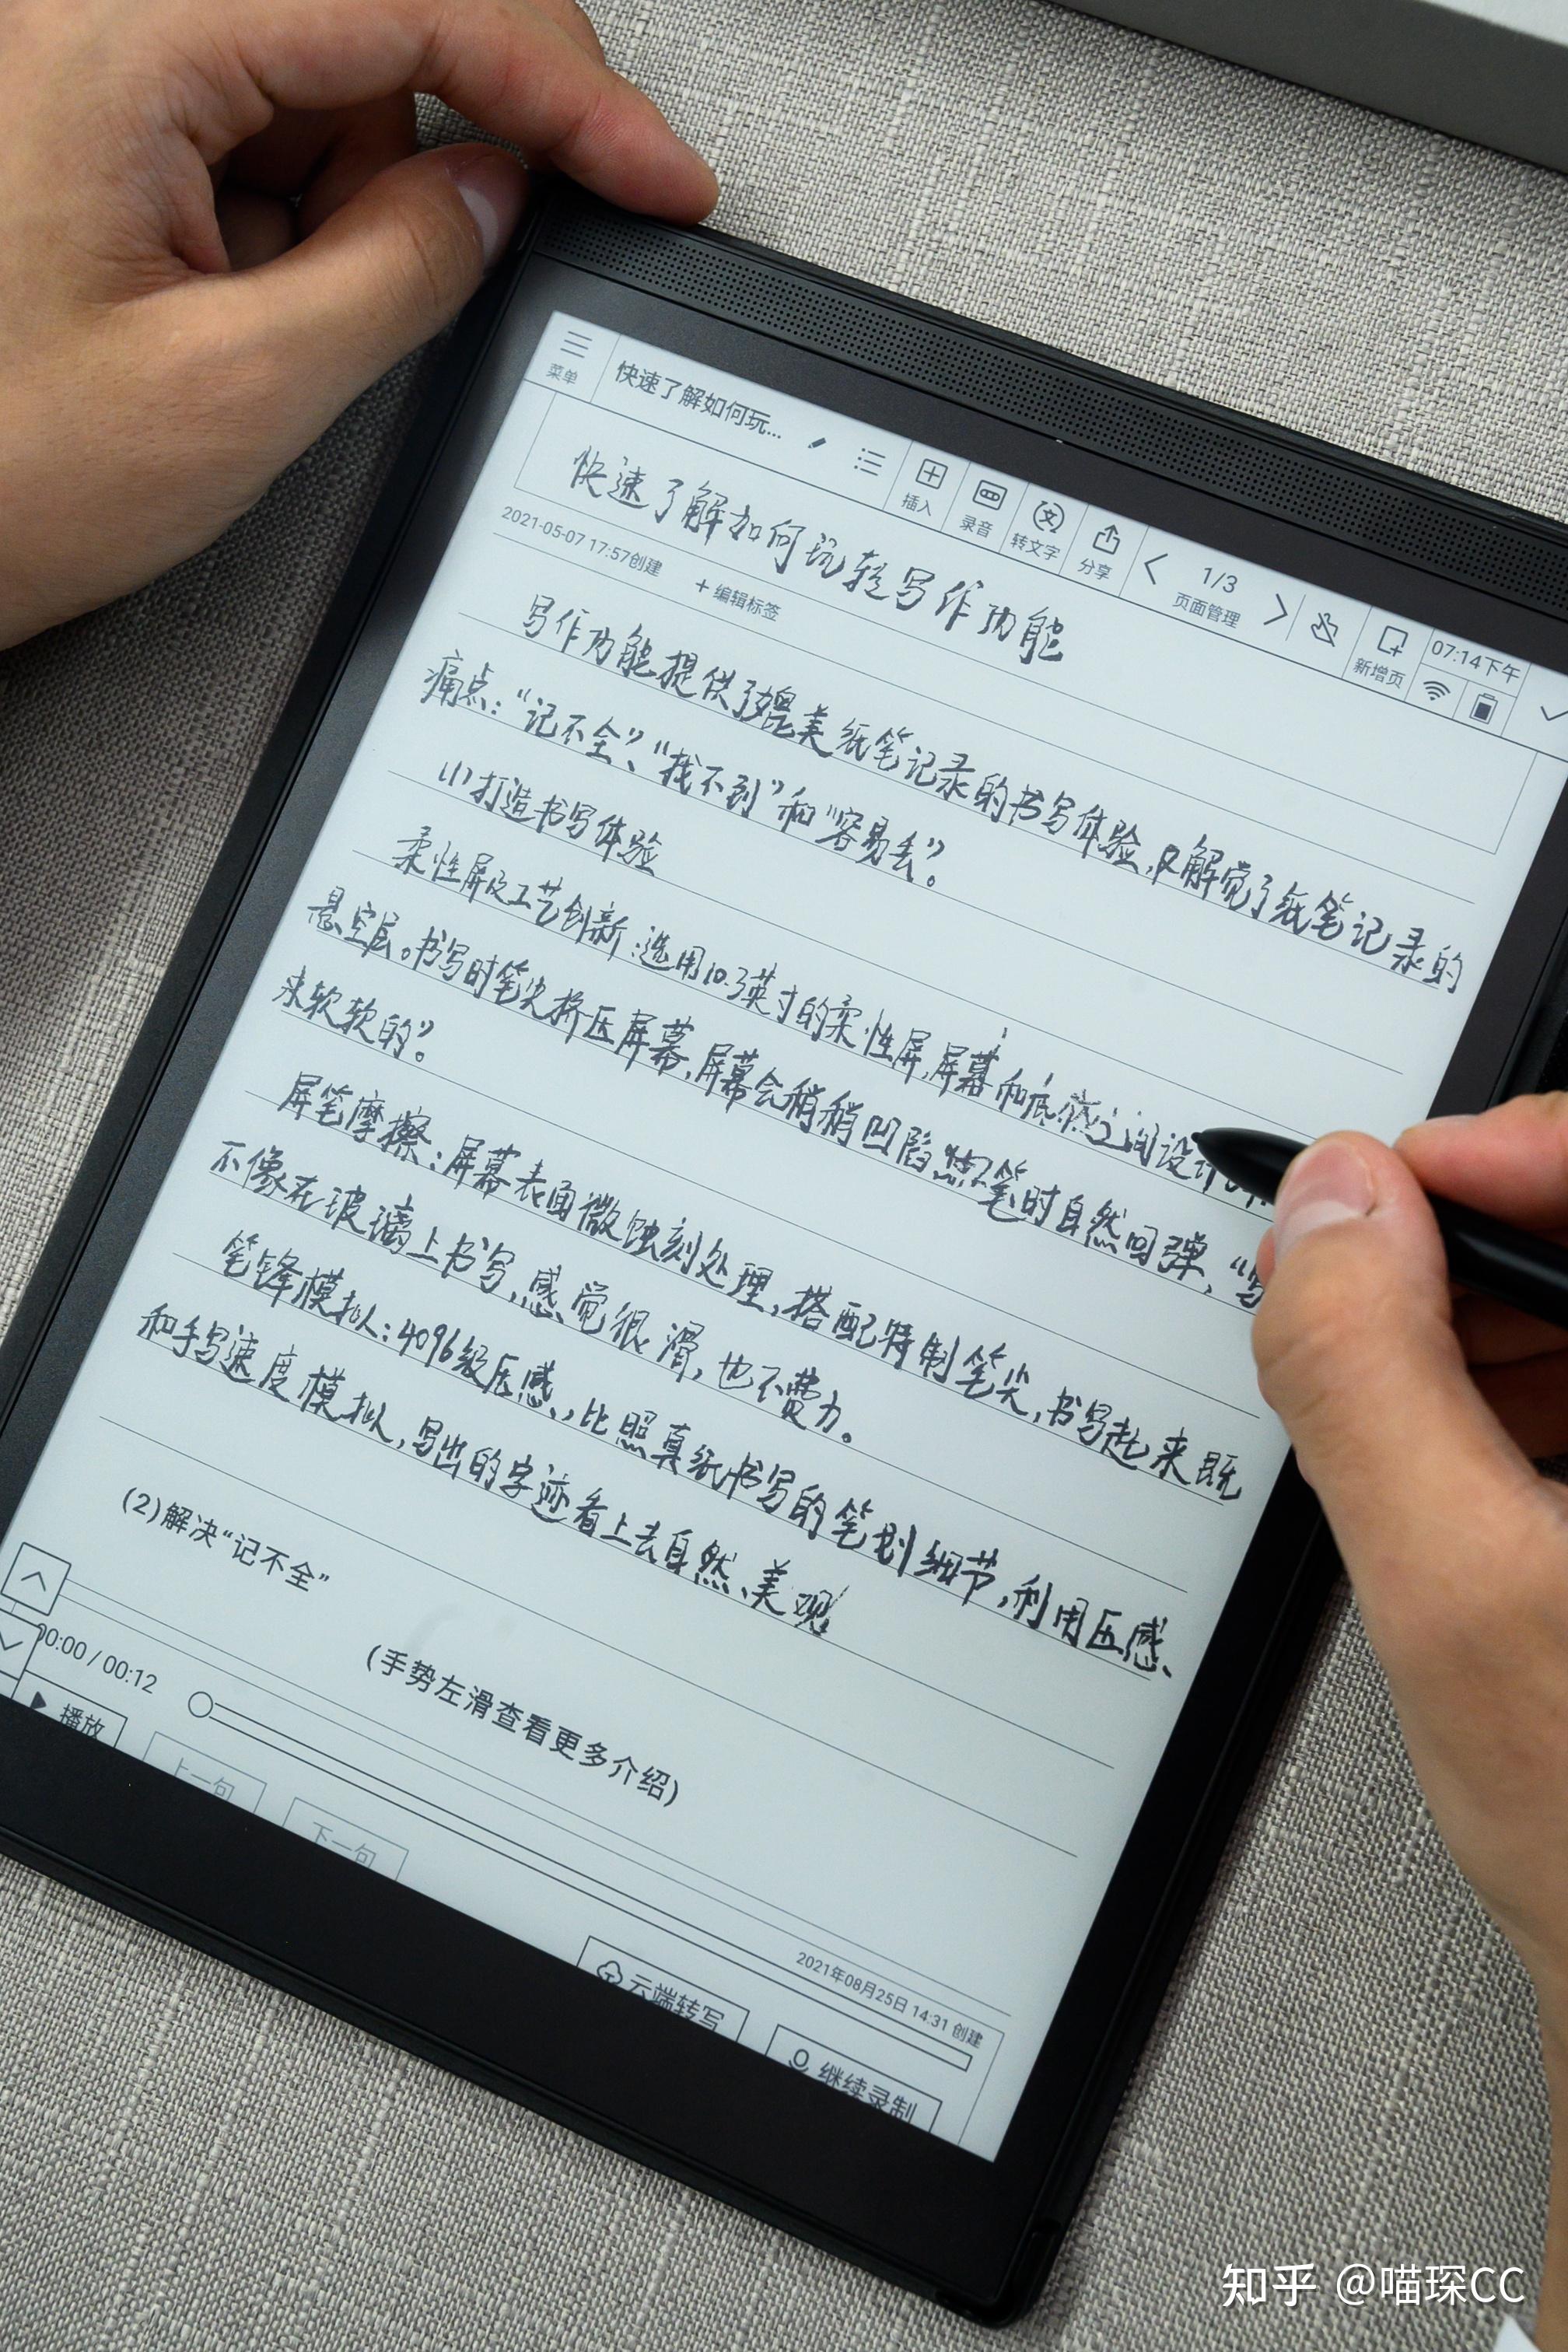 菜单
快速了解如何玩...
插入
录音
转文字
分享
1/3
页面管理
新增页
07:14下午
快速了解如何玩转写作功能
2021-05-07 17:57创建
+ 编辑标签
写作功能提供了媲美纸笔记录的书写体验,又解觉了纸笔记录的
痛点:“记不全”、“找不到”和“容易丢”。
(1)打造书写体验
柔性屏及工艺创新:选用10.3英寸的柔性屏,屏幕和底板之间设计
悬空层。书写时笔尖挤压屏幕,屏幕会稍稍凹陷,抬笔时自然回弹,“写
来软软的”。
屏笔摩擦:屏幕表面微蚀刻处理,搭配特制笔尖,书写起来既
不像在玻璃上书写,感觉很滑,也不费力。
笔锋模拟:4096级压感,比照真纸书写的笔划细节,利用压感、
和手写速度模拟,写出的字迹看上去自然、美观
(2)解决“记不全”
(手势左滑查看更多介绍)
00:00 / 00:12
播放
上一句
下一句
2021年08月25日 14:31 创建
云端转写
继续录制
知乎 @喵琛CC